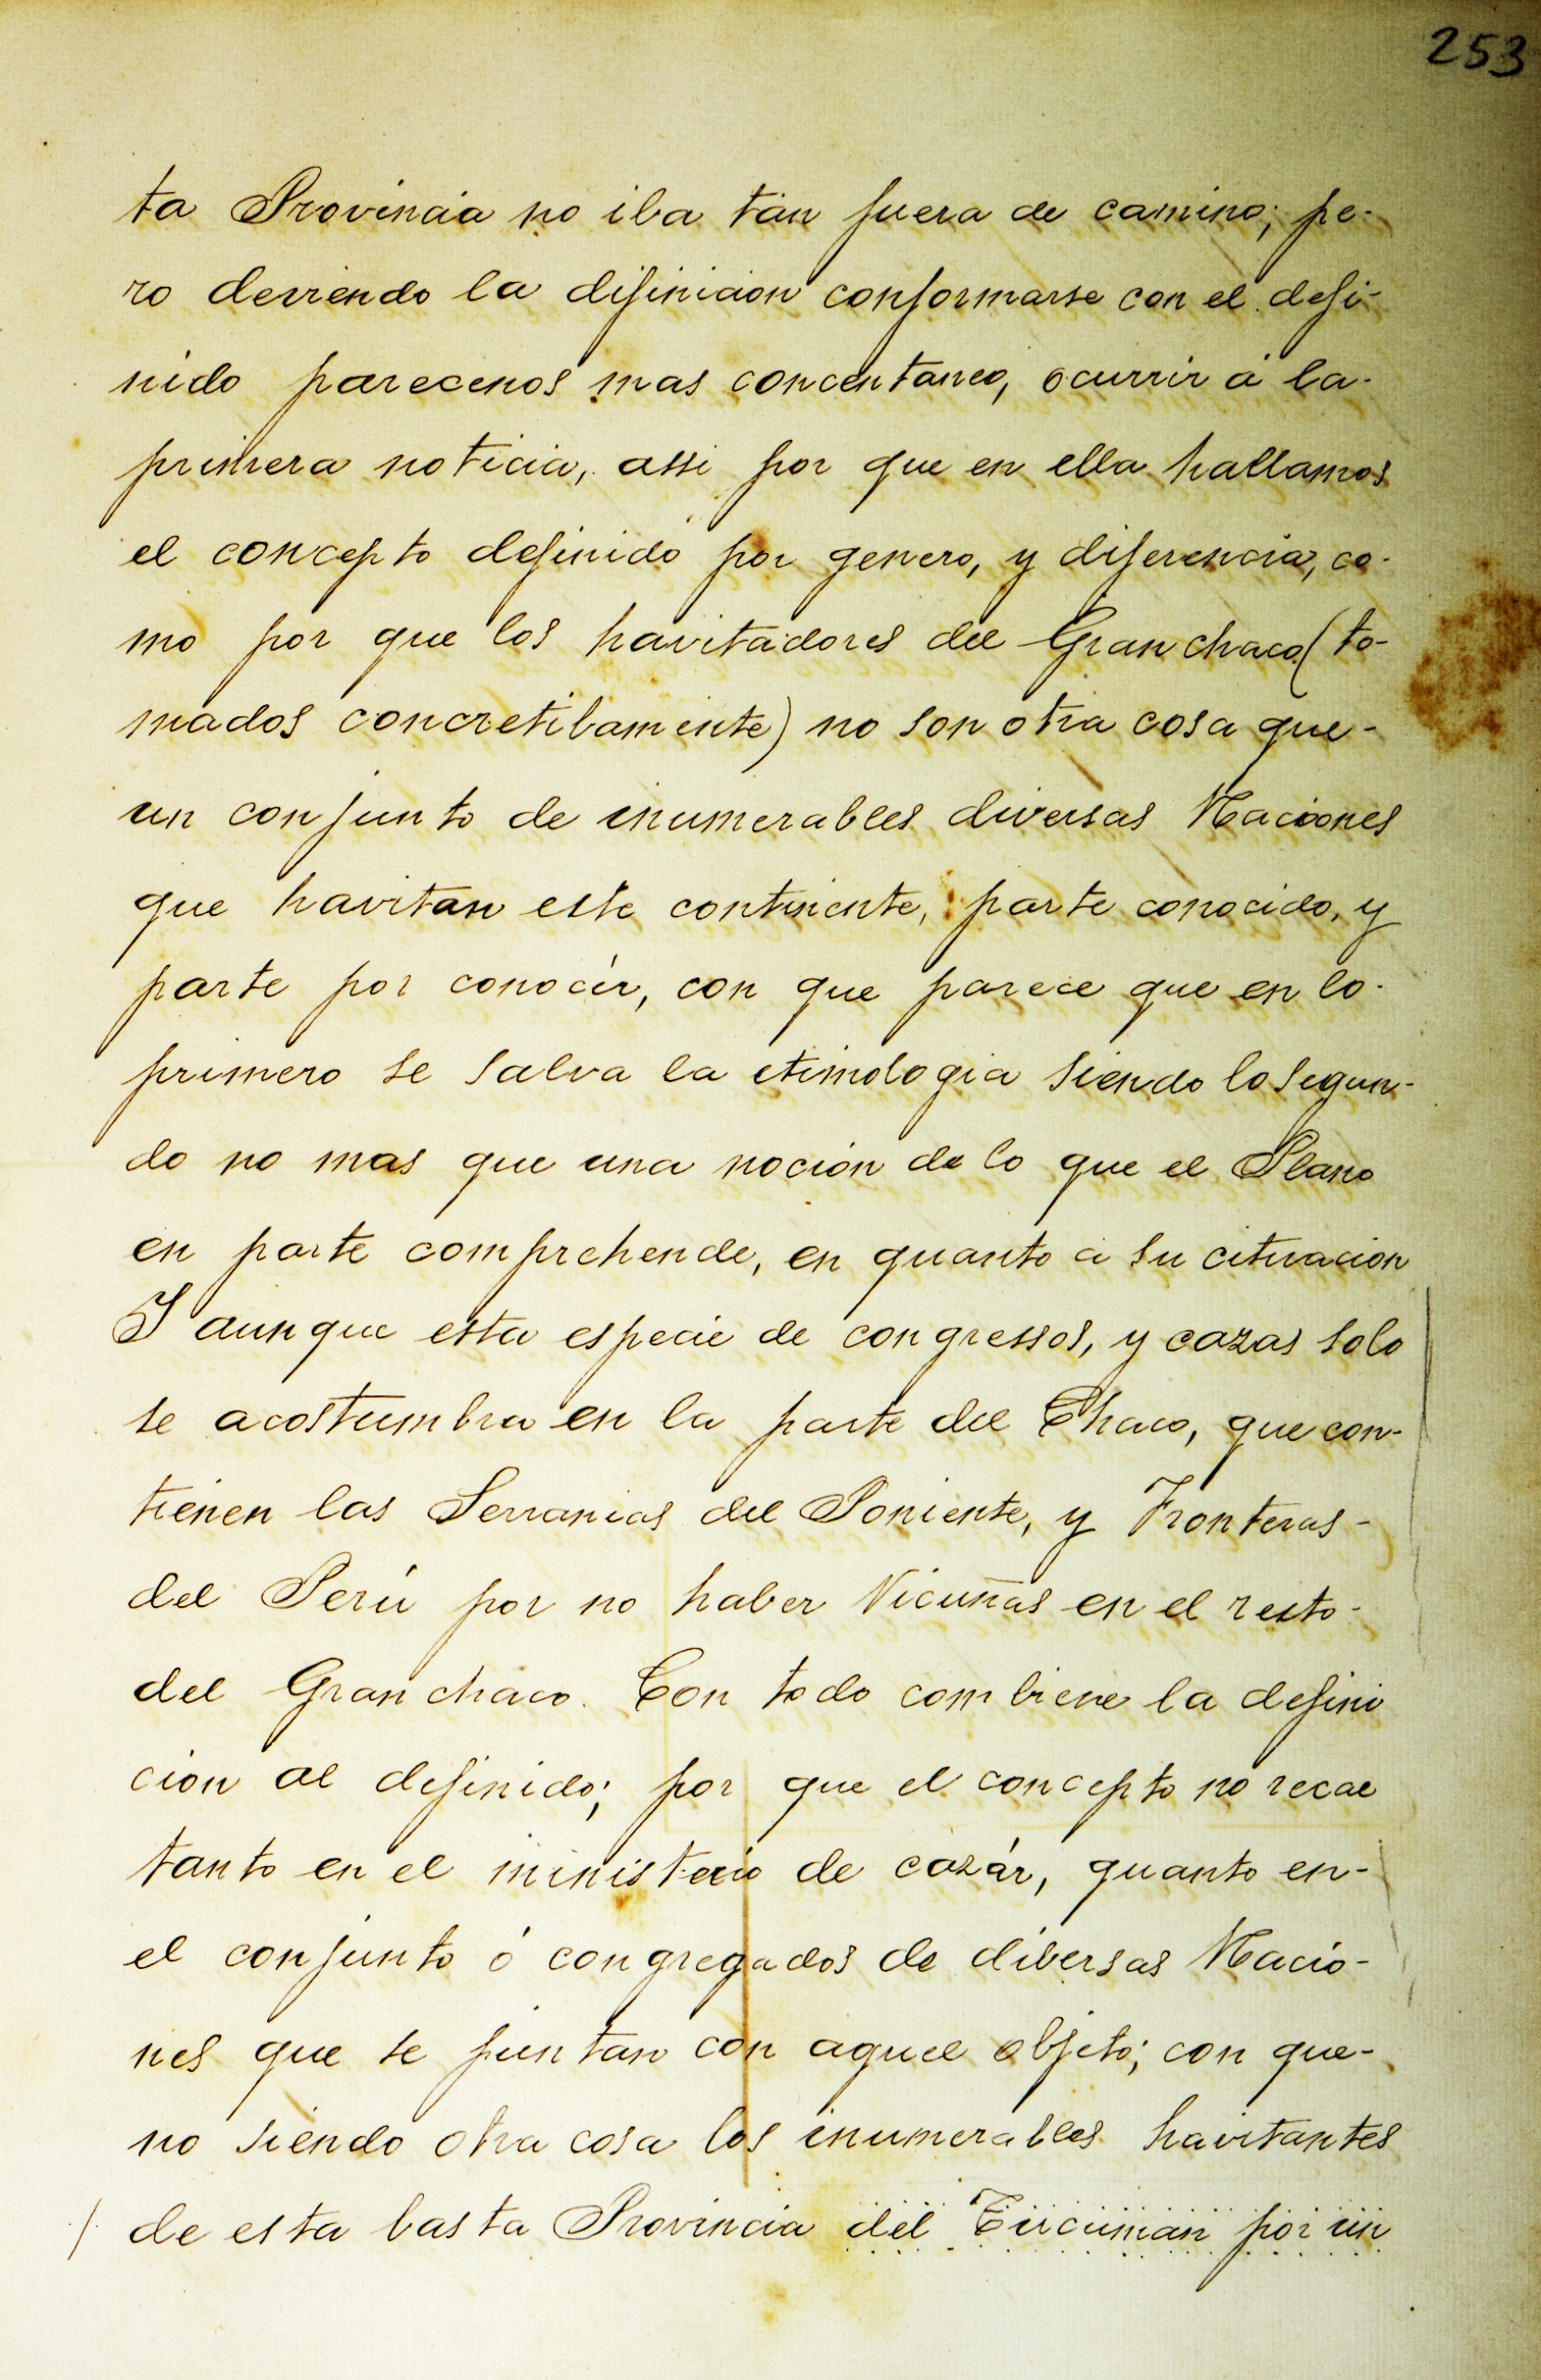 253
ta Provincia no iba tan fuera de camino; pe-
ro deviendo la difinicion conformarse con el defi-
nido parecenos mas concentaneo, ocurrir á la-
primera noticia, assi por que en ella hallamos
el concepto definido por genero, y diferencia, co-
mo por que los havitadores del Gran chaco (to-
mados concretibamente) no son otra cosa que-
un conjunto de inumerables diversas Naciones
que havitan este continente, parte conocido, y
parte por conocér, con que parece que en lo-
primero se salva la etimologia siendo lo segun-
do no mas que una nocion de lo que el Plano
en parte comprehende, en quanto a su cituacion
I aunque esta especie de congressos, y cazas solo
se acostumbra en la parte del Chaco, que con-
tienen las Serranias del Poniente, y Fronteras-
del Perú por no haber Vicuñas en el resto-
del Gran chaco. Con todo combiene la defini
cion al definido; por que el concepto no recae
tanto en el ministerio de cazár, quanto en-
el conjunto ó congregados de dibersas Nacio-
nes que se juntan con aquel objeto; con que-
no siendo otra cosa los inumerables havitantes
de esta basta Provincia del Tucuman por un